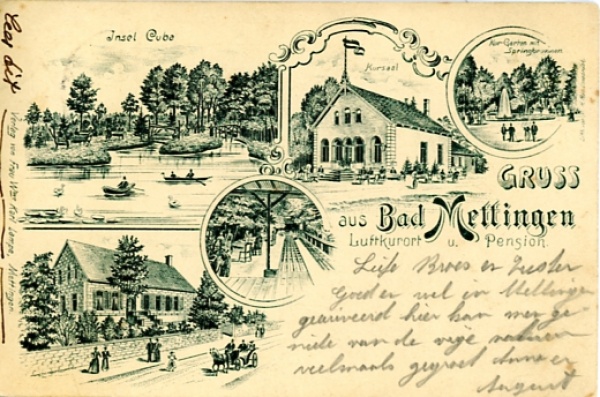 Insel Cuba
Kursaal
Kur-Garten mit
Springbrunnen
GRUSS
aus Bad Mettingen
Luftkurort u. Pension.
Verlag von Frau Wwe Carl Lange, Mettingen.
Goed en wel in Mettingen
gearriveerd hier kan men ge
niete van de vrije natuur
veelmaals gegroet Anna en
August